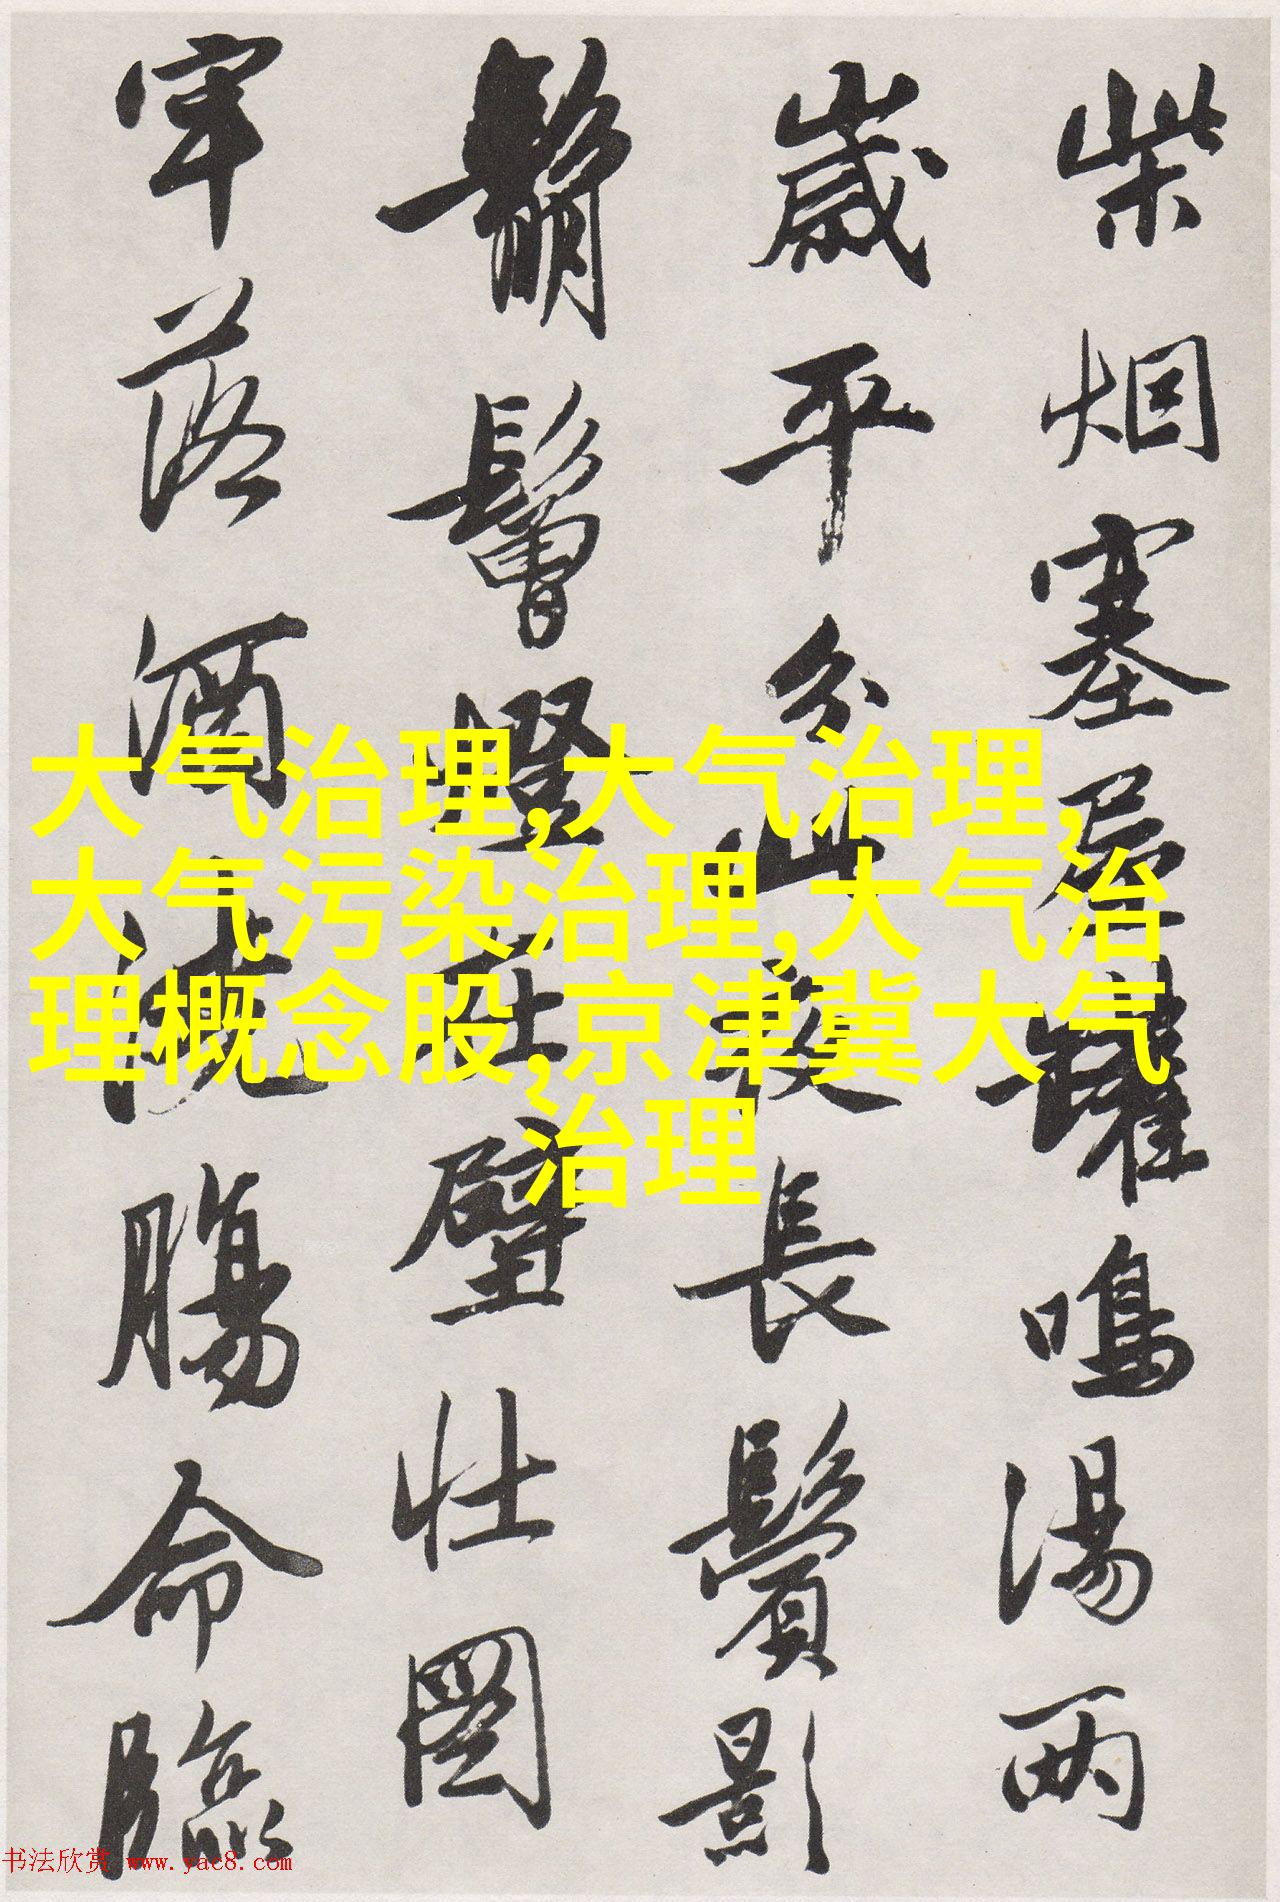 柴烟塞屋罐鳴湯两
歲平分此夜長鬢影
鬅鬙燈在壁壮图
牢落酒澆腸命臨
大气治理,大气治理,
大气污染治理,大气治
理概念股,京津冀大气
治理
书法欣赏 www.yac8.com